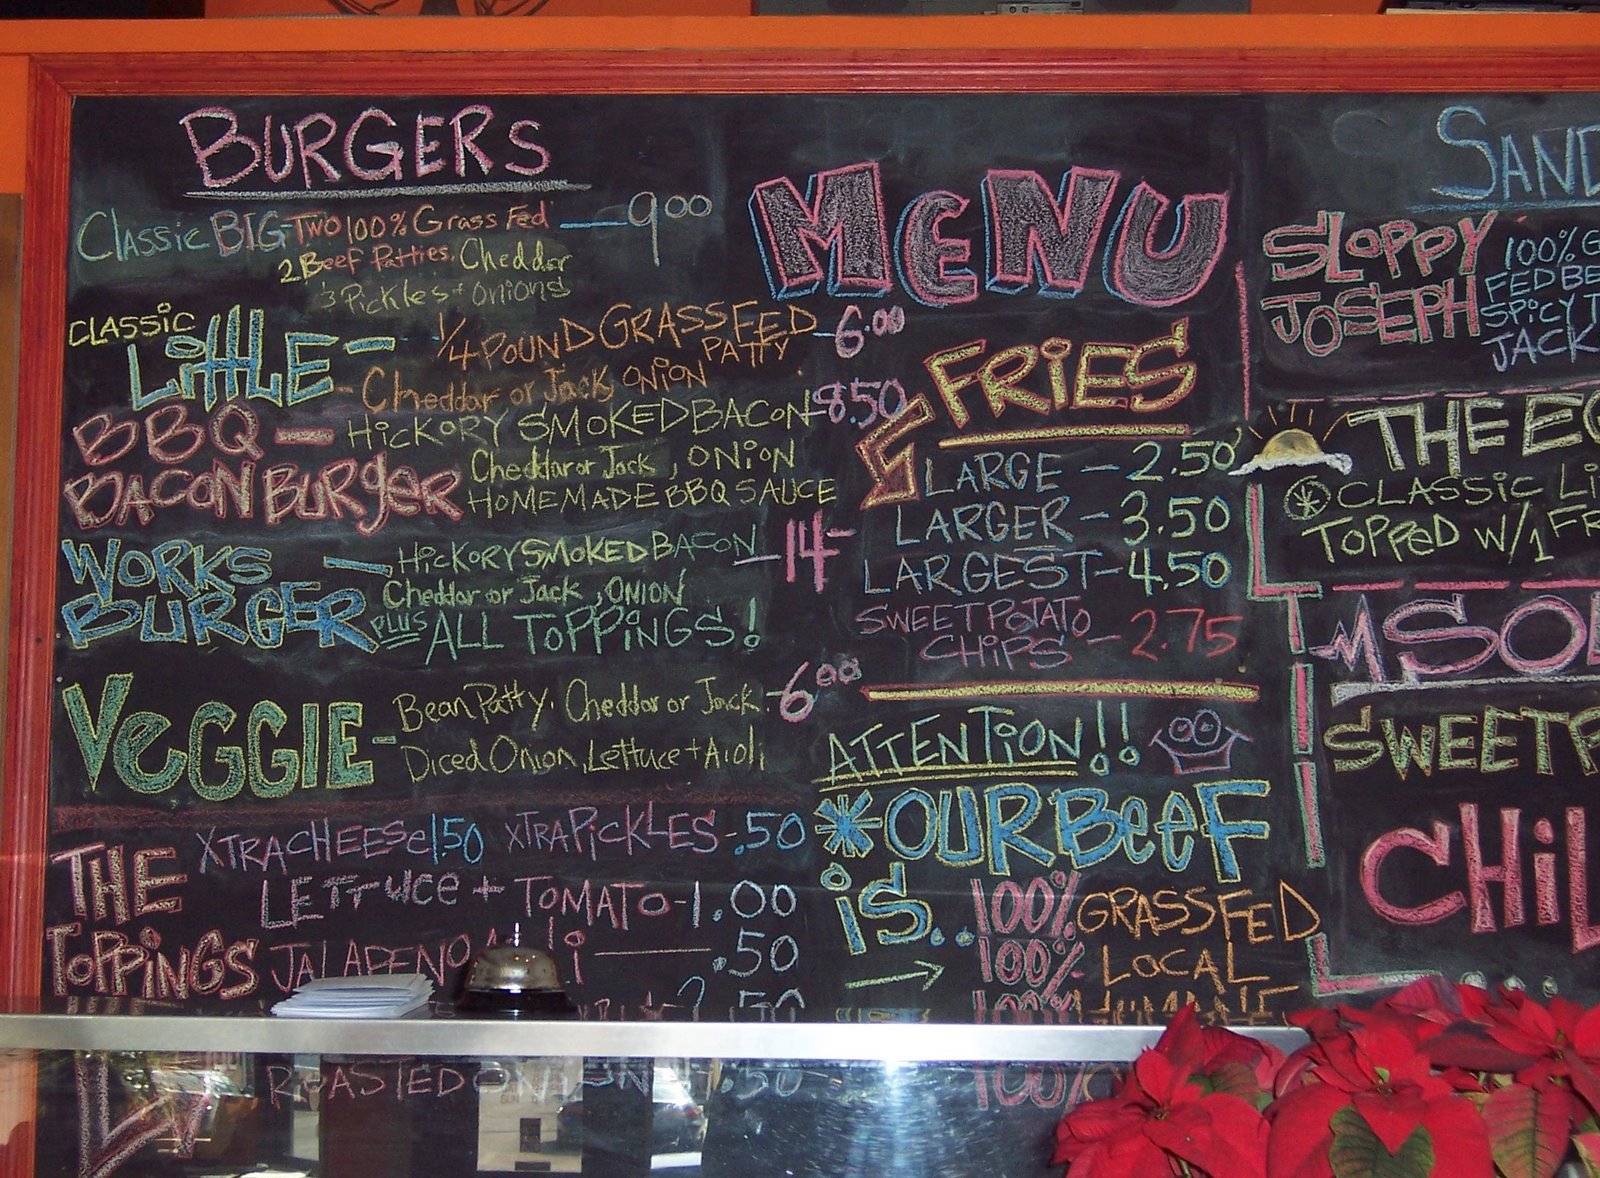 BURGERS
Classic BIG-TWO 100% Grass Fed — 9.00
2 Beef Patties, Cheddar
3 Pickles + Onions
CLASSIC
LiTTLE - 1/4 POUND GRASSFED PATTY - 6.00
- Cheddar or Jack ONION
BBQ - HICKORY SMOKED BACON - 8.50
BACON BURgER Cheddar or Jack, ONION
HOMEMADE BBQ SAUCE
WORKS - HICKORY SMOKED BACON - 14-
BURGER Cheddar or Jack, ONION
PLUS ALL TOPPiNGS!
VeGGIE - Bean Patty, Cheddar or Jack - 6.00
Diced Onion, Lettuce + Aioli
THE TOPPiNGS
XTRA CHEESE 1.50 XTRA PiCKLES - .50
LETTuce + TOMATO - 1.00
JALAPENO .50
.50
ROASTED .50
MeNU
FRiES
LARGE - 2.50
LARGER - 3.50
LARGEST - 4.50
SWEET POTATO
CHiPS - 2.75
ATTENTiON!!
*OUR BeeF
iS...
100% GRASSFED
100% LOCAL
100% HUMANE
100%
SAND
SLOPPY JOSEPH
100% G
FED BE
SPICY T
JACK
THE EG
CLASSIC Li
TOPPED W/1 FR
SOL
SWEET P
CHiL